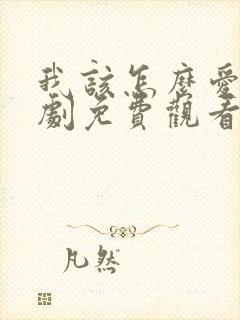 我該怎麼愛
劇免費觀看
凡然